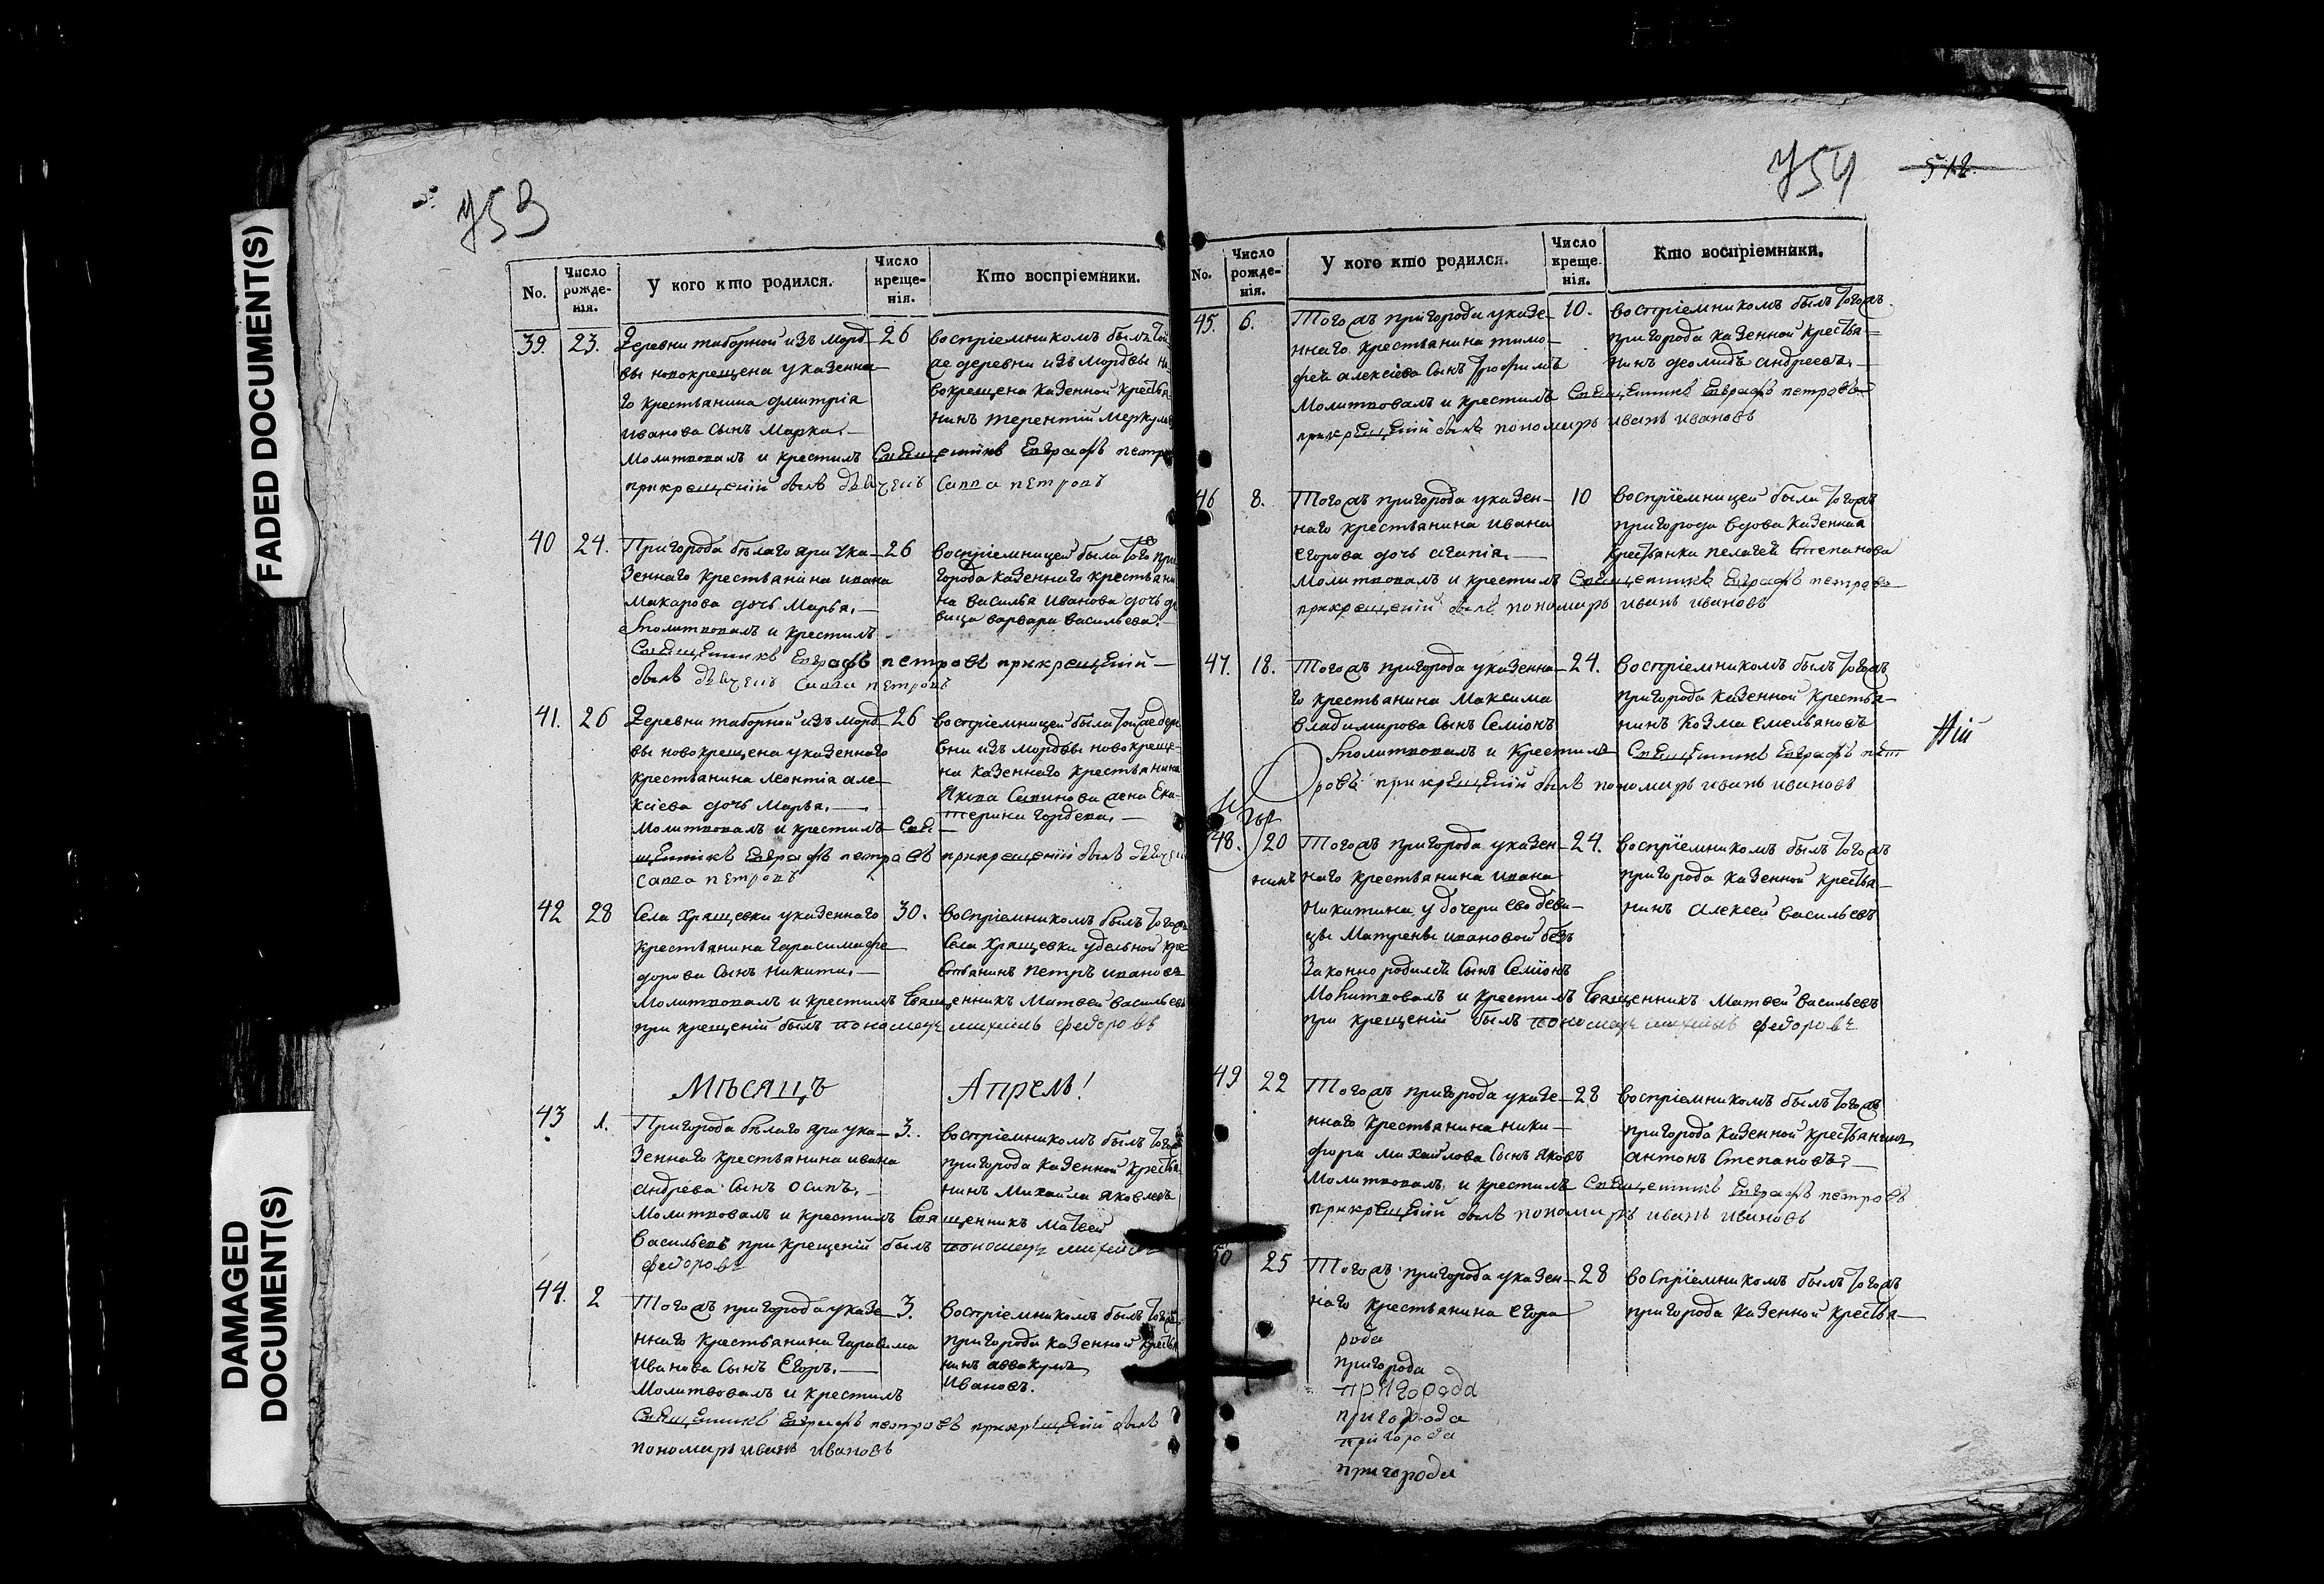 FADED DOCUMENT(S)
DAMAGED
DOCUMENT(S)
753
No.
Число рожденія.
У кого кто родился.
Число крещенія.
Кто воспріемники.
39. 23.
Деревни таборной изъ морд-
вы новокрещена указенна-
го крестьянина дмитріа
иванова сынъ Марко.
Молитвовалъ и крестилъ Священникъ Евграфъ петро
прикрещеніи былъ дьячекъ Савва петровъ
26
воспріемникомъ былъ той
же деревни изъ мордвы но
вокрещена казенной крестья
нинъ терентій меркулов
40 24.
Пригорода бѣлаго яра ука-
зеннаго крестьянина ивана
макарова дочь Марья.
Молитвовалъ и крестилъ
Священникъ Евграфъ петровъ прикрещеніи
былъ дьячекъ Савва петровъ
26
воспріемницей была того же при
города казеннаго крестьяни
на василья иванова дочь де
вица варвара васильева.
41. 26
Деревни таборной изъ морд-
вы новокрещена указеннаго
крестьянина леонтіа але-
ксіева дочь Марья.
Молитвовалъ и крестилъ Свя-
щенникъ Евграфъ петровъ прикрещеніи былъ дьячекъ
Савва петровъ
26
воспріемницей была той же дере
вни изъ мордвы новокреще-
на казеннаго крестьянина
Якова Савинова жена Ека-
терина гордева.
42 28
Села хрящевки указеннаго
крестьянина гарасима фе-
дорова сынъ никита.
Молитвовалъ и крестилъ священникъ Матвей васильевъ
при крещеніи былъ пономарь михаилъ федоровъ
30.
воспріемникомъ былъ тогожъ
села хрящевки удельной кре-
стьянинъ петръ ивановъ
Мѣсяцъ Апрель!
43 1.
Пригорода бѣлаго яра ука-
зеннаго крестьянина ивана
андрева сынъ осипъ.
Молитвовалъ и крестилъ Священникъ Матвей
васильевъ прикрещеніи былъ пономарь михаилъ
федоровъ
3.
воспріемникомъ былъ тогожъ
пригорода казенной крестья
нинъ Михайла яковлевъ
44. 2
Тогожъ пригорода указе-
ннаго крестьянина гарасима
иванова сынъ Егоръ.
Молитвовалъ и крестилъ
Священникъ Евграфъ петровъ прикрещеніи былъ
пономарь иванъ ивановъ
3.
воспріемникомъ былъ тогожъ
пригорода казенной крестья
нинъ аввакумъ
ивановъ.
754
512.
No.
Число рожденія.
У кого кто родился.
Число крещенія.
Кто воспріемники.
45. 6.
Тогожъ пригорода указе-
ннаго крестьянина тимо-
фея алексіева сынъ трофимъ
Молитвовалъ и крестилъ Священникъ Евграфъ петровъ
прикрещеніи былъ пономарь иванъ ивановъ
10.
воспріемникомъ былъ тогожъ
пригорода казенной крестья-
нинъ деомидъ андреевъ.
46 8.
Тогожъ пригорода указен-
наго крестьянина ивана
егорова дочь агапіа.
Молитвовалъ и крестилъ Священникъ Евграфъ петровъ
прикрещеніи былъ пономарь иванъ ивановъ
10
воспріемницей была тогожъ
пригорода вдова казенная
крестьянка пелагея Степанова
47. 18.
Тогожъ пригорода указенна-
го крестьянина Максима
владимирова сынъ Семіонъ
Молитвовалъ и крестилъ Священникъ Евграфъ пет
ровъ прикрещеніи былъ пономарь иванъ ивановъ
24.
воспріемникомъ былъ тогожъ
пригорода казенной крестья-
нинъ козма емельяновъ
48. 20
Тогожъ пригорода указен-
наго крестьянина ивана
никитина у дочери ево деви-
цы Матрены ивановой безъ
законно родился сынъ Семіонъ
Молитвовалъ и крестилъ священникъ Матвей васильевъ
при крещеніи былъ пономарь михаилъ федоровъ
24.
воспріемникомъ былъ тогожъ
пригорода казенной крестья-
нинъ алексей васильевъ
49 22
Тогожъ пригорода указе-
ннаго крестьянина ники-
фора михайлова сынъ яковъ
Молитвовалъ и крестилъ Священникъ Евграфъ петровъ
прикрещеніи былъ пономарь иванъ ивановъ
28
воспріемникомъ былъ тогожъ
пригорода казенной крестьянинъ
антонъ Степановъ.
50 25
Тогожъ пригорода указен-
наго крестьянина егора
28
воспріемникомъ былъ тогожъ
пригорода казенной крестья-
рода
пригорода
пригорода
пригорода
пригорода
пригорода